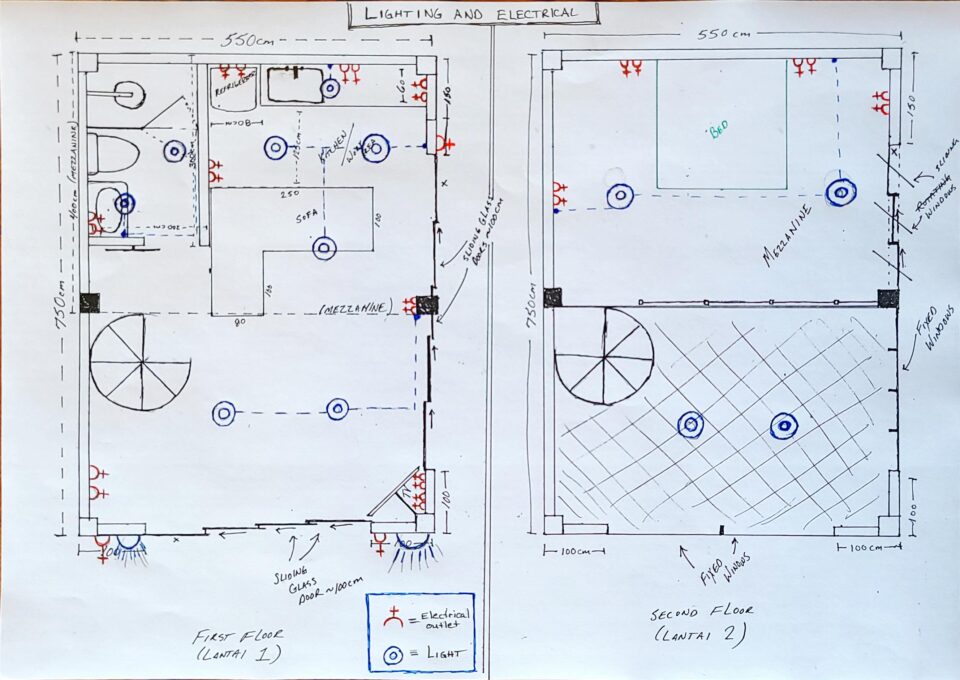 LIGHTING AND ELECTRICAL
550cm
REFRIGERATOR
60
150
80cm
125cm
KITCHEN/
WORK AREA
300cm
400cm (MEZZANINE)
200cm
250
SOFA
100
100
80
SLIDING GLASS
DOORS ~100CM
750cm
(MEZZANINE)
TV
100
100
100
SLIDING
GLASS
DOOR ~100CM
FIRST FLOOR
(LANTAI 1)
= Electrical
outlet
= LIGHT
550cm
BED
150
SLIDING
ROTATING
WINDOWS
MEZZANINE
750cm
FIXED
WINDOWS
100
100cm
100cm
FIXED
WINDOWS
SECOND FLOOR
(LANTAI 2)